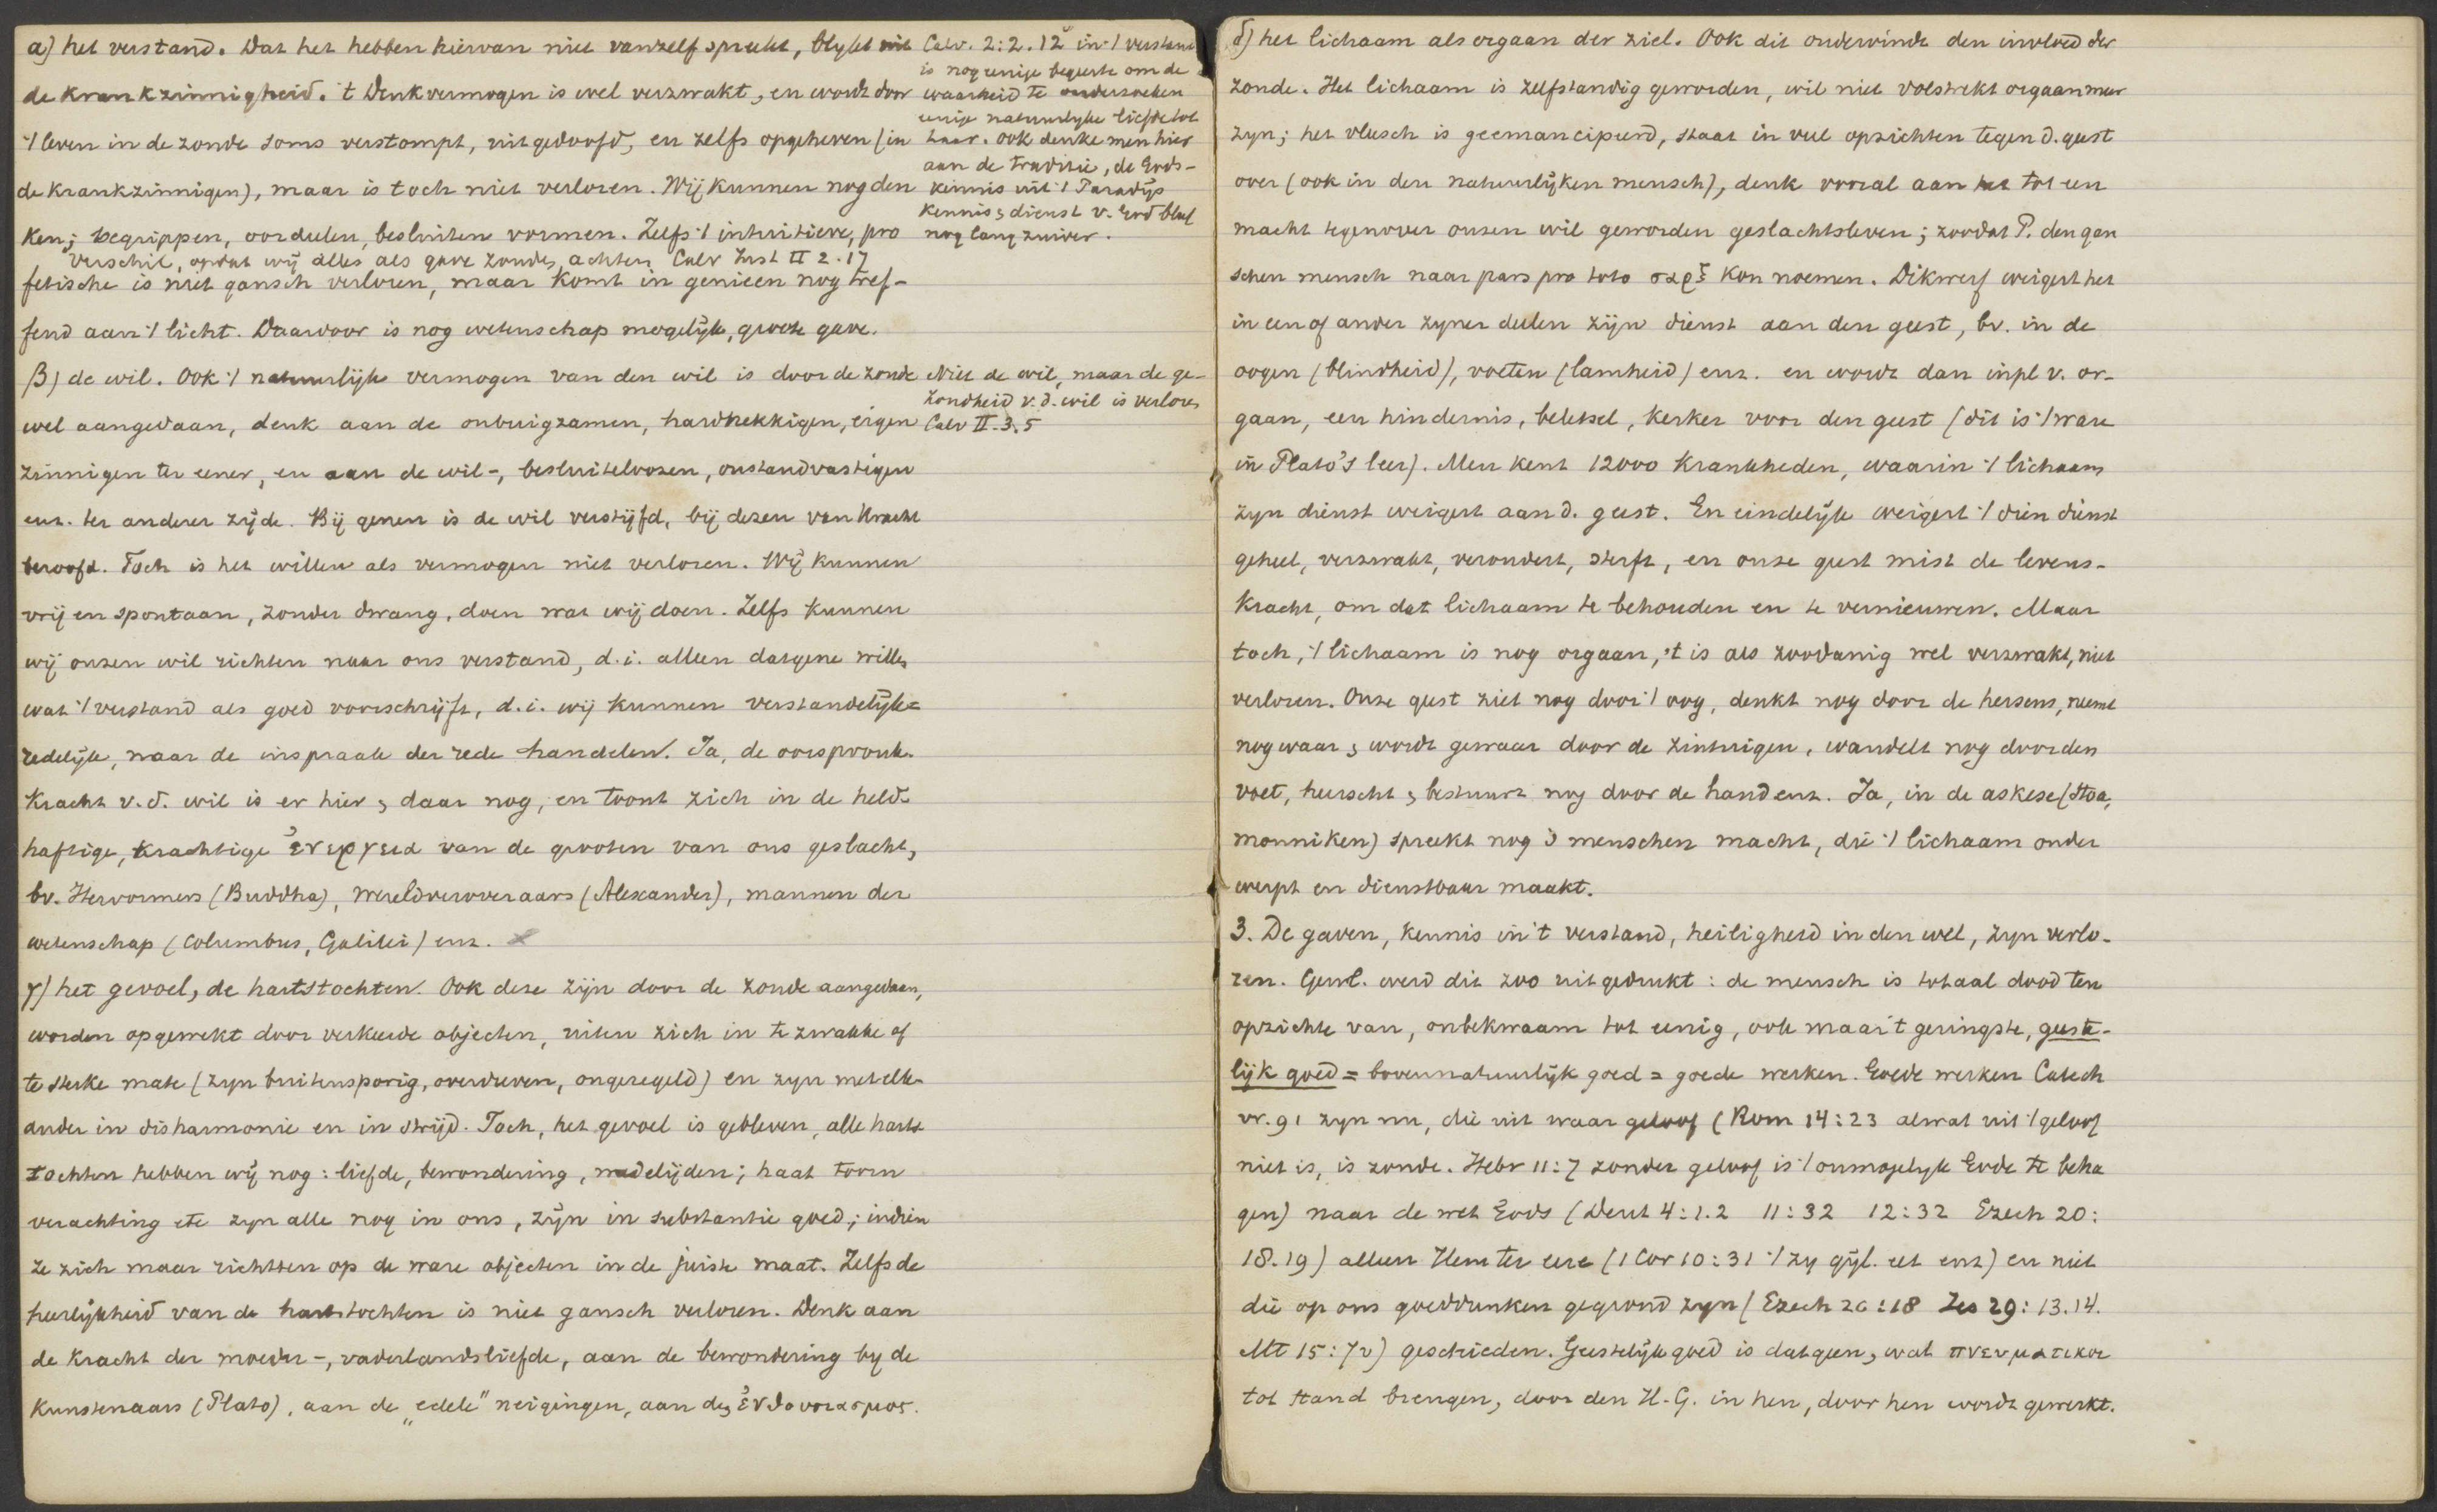 α) het verstand. Dat het hebben hiervan niet vanzelf spreekt, blykt uit
de krankzinnigheid. 't Denkvermogen is wel verzwakt, en wordt door
't leven in de zonde soms verstompt, uitgedoofd, en zelfs opgeheven (in
de krankzinnigen), maar is toch niet verloren. Wij kunnen nog den
ken; begrippen, oordeelen, besluiten vormen. Zelfs 't intuitieve, pro
verschil, opdat wij alles als gave zouden achten Calv Inst II 2.17
fetische is niet gansch verloren, maar komt in genieen nog tref-
fend aan 't licht. Daardoor is nog wetenschap mogelijk, groote gave.
Calv. 2:2.12 in 't verstand
is nog eenige begeerte om de
waarheid te onderzoeken
eenige natuurlyke liefde tot
haar. ook denke men hier
aan de traditie, de Gods-
kennis uit 't Paradijs
kennis & dienst v. God bleef
nog lang zuiver.
β) de wil. Ook 't natuurlijk vermogen van den wil is door de zonde
wel aangedaan, denk aan de onbuigzamen, hardnekkigen, eigen
zinnigen ter eener, en aan de wil-, besluiteloozen, onstandvastigen
enz. ter anderer zijde. Bij genen is de wil verstijfd, bij dezen van kracht
beroofd. Toch is het willen als vermogen niet verloren. Wij kunnen
vrij en spontaan, zonder dwang, doen wat wij doen. Zelfs kunnen
wij onzen wil richten naar ons verstand, d.i. alleen datgene willen
wat 't verstand als goed voorschrijft, d.i. wij kunnen verstandelijk=
redelijk, naar de inspraak der rede handelen. Ja, de oorspronk.
kracht v.d. wil is er hier & daar nog, en toont zich in de held-
haftige, krachtige ἐνεργεια van de grooten van ons geslacht,
bv. Hervormers (Buddha), wereldveroveraars (Alexander), mannen der
wetenschap (Columbus, Galilei) enz.
Niet de wil, maar de ge-
zondheid v.d. wil is verloren
Calv II.3.5
γ) het gevoel, de hartstochten. Ook deze zijn door de zonde aangedaan,
worden opgewekt door verkeerde objecten, uiten zich in te zwakke of
te sterke mate (zyn buitensporig, overdreven, ongeregeld) en zyn met elk-
ander in disharmonie en in strijd. Toch, het gevoel is gebleven, alle harts
tochten hebben wij nog: liefde, bewondering, medelijden; haat toorn
verachting etc zyn alle nog in ons, zijn in substantie goed; indien
ze zich maar richtten op de ware objecten in de juiste maat. Zelfs de
heerlijkheid van de hartstochten is niet gansch verloren. Denk aan
de kracht der moeder-, vaderlandsliefde, aan de bewondering by de
kunstenaars (Plato), aan de „edele" neigingen, aan den ἐνθουσιασμος.
δ) het lichaam als orgaan der ziel. Ook dit ondervindt den invloed der
zonde. Het lichaam is zelfstandig geworden, wil niet volstrekt orgaan meer
zyn; het vleesch is geemancipeerd, staat in veel opzichten tegen d. geest
over (ook in den natuurlijken mensch), denk vooral aan het tot een
macht tegenover onzen wil geworden geslachtsleven; zoodat P. den gan
schen mensch naar pars pro toto σαρξ kon noemen. Dikwerf weigert het
in een of ander zyner deelen zijn dienst aan den geest, bv. in de
oogen (blindheid), voeten (lamheid) enz. en wordt dan inpl v. or-
gaan, een hindernis, beletsel, kerker voor den geest (dit is 't ware
in Plato's leer). Men kent 12000 krankheden, waarin 't lichaam
zyn dienst weigert aan d. geest. En eindelijk weigert 't dien dienst
geheel, verzwakt, veroudert, sterft, en onze geest mist de levens-
kracht, om dat lichaam te behouden en te vernieuwen. Maar
toch, 't lichaam is nog orgaan, 't is als zoodanig wel verzwakt, niet
verloren. Onze geest ziet nog door 't oog, denkt nog door de hersens, neemt
nog waar & wordt gewaar door de zintuigen, wandelt nog door den
voet, heerscht & bestuurt nog door de hand enz. Ja, in de askese (Stoa,
monniken) spreekt nog 's menschen macht, die 't lichaam onder
werpt en dienstbaar maakt.
3. De gaven, kennis in 't verstand, heiligheid in den wil, zyn verlo-
ren. Gewl. werd dit zoo uitgedrukt: de mensch is totaal dood ten
opzichte van, onbekwaam tot eenig, ook maar 't geringste, geeste-
lijk goed = bovennatuurlijk goed = goede werken. Goede werken Catech
vr. 91 zyn nu, die uit waar geloof (Rom 14:23 al wat uit 't geloof
niet is, is zonde. Hebr 11:7 zonder geloof is 't onmogelyk Gode te beha
gen) naar de wet Gods (Deut 4:1.2 11:32 12:32 Ezech 20:
18.19) alleen Hem ter eere (1 Cor 10:31 't zy gijl. eet enz) en niet
die op ons goeddunken gegrond zyn (Ezech 20:18 Jes 29:13.14.
Mt 15:7v) geschieden. Geestelijk goed is datgeen, wat πνευματικοι
tot stand brengen, door den H.G. in hen, door hen wordt gewerkt.